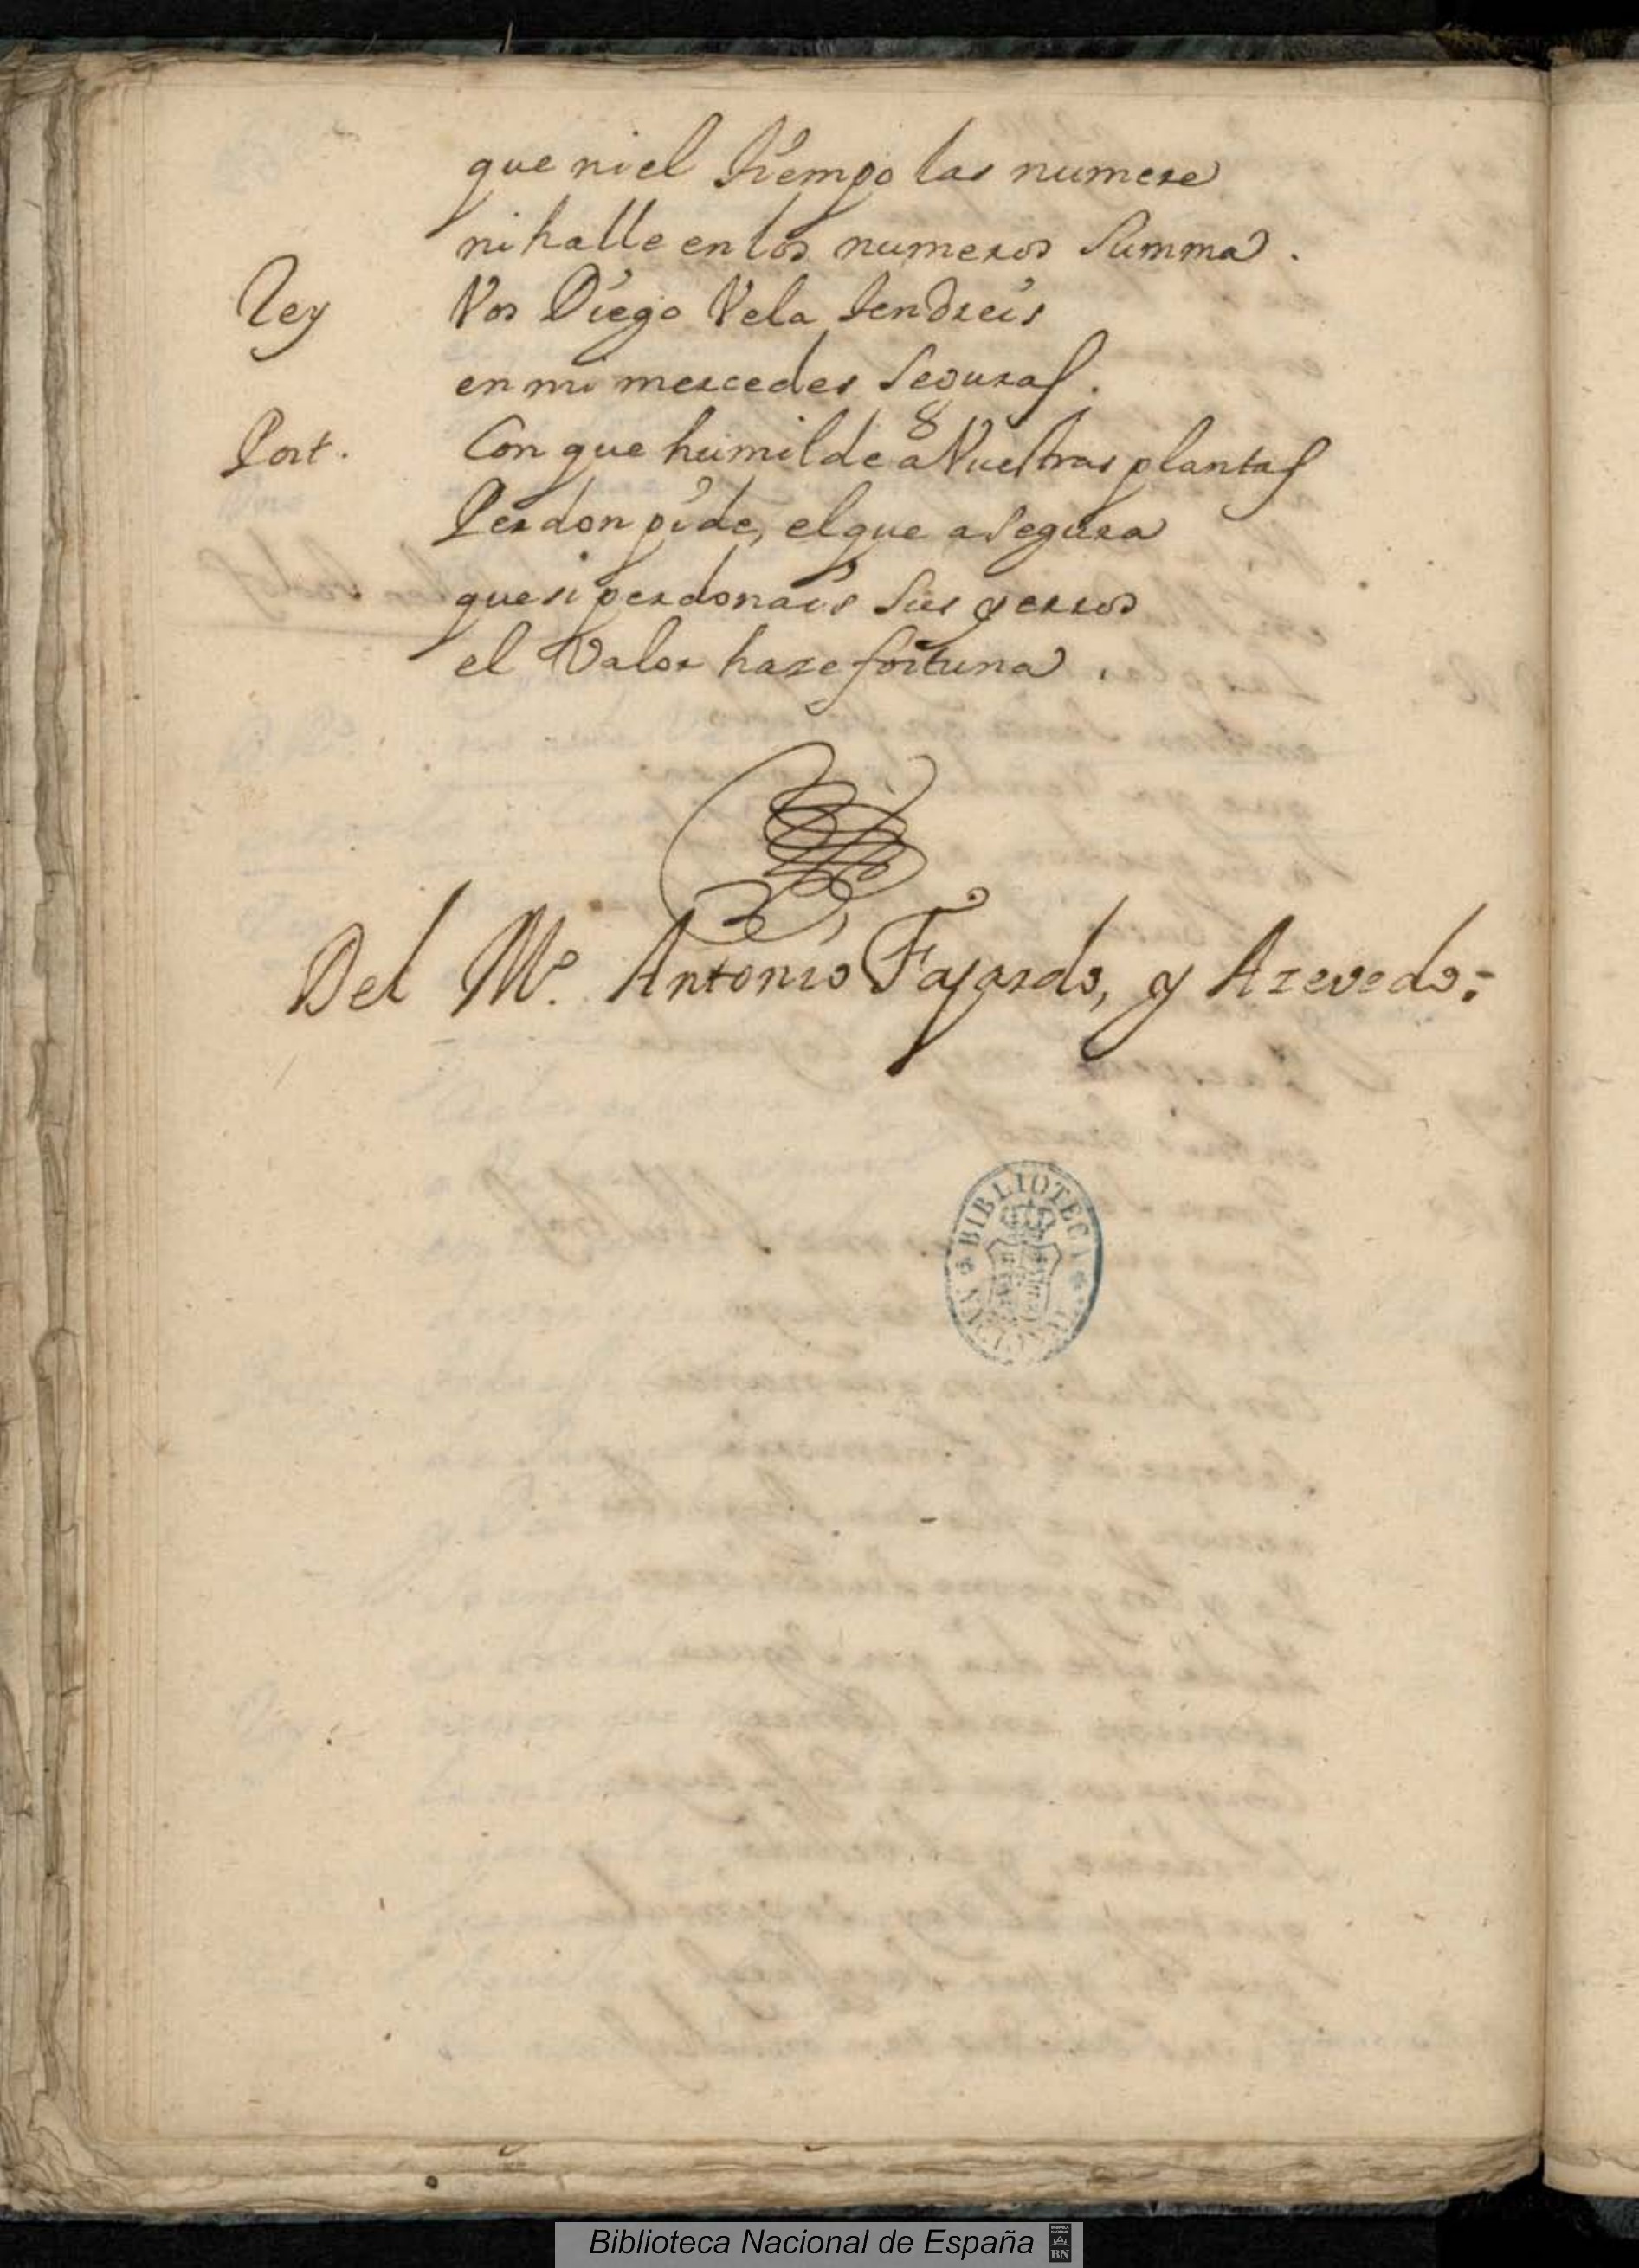 que ni el tiempo las numere
ni halle en los numeros summa.
Rey Vos Diego Vela tendreis
en mi mercedes seguras.
Port. Con que humilde a Vuestras plantas
Perdon pide, el que asegura
que si perdonais sus yerros
el Valor haze fortuna.
Del Mº. Antonio Fajardo, y Azevedo;
BIBLIOTECA NACIONAL
Biblioteca Nacional de España
BN